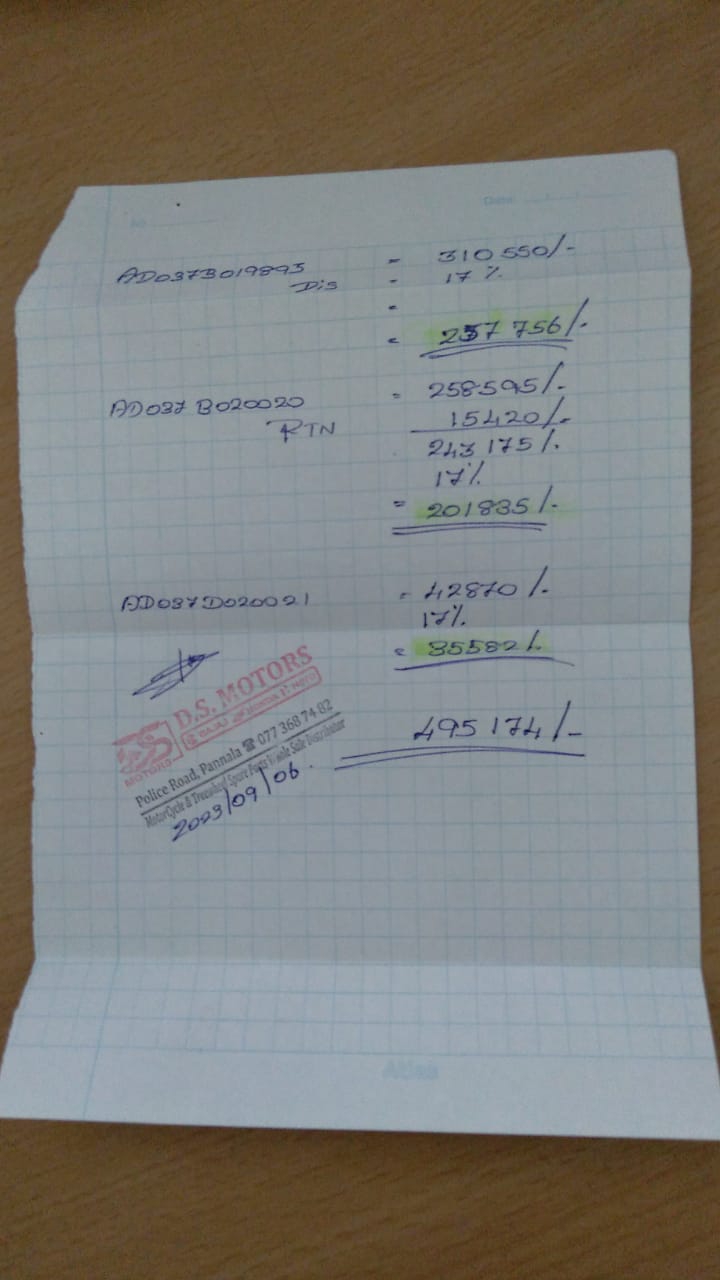 No
Date
AD037B019893 = 310 550/-
Dis - 17 %
-
= 257 756/-
AD037 B020020 = 258595/-
RTN 15420/-
243 175/-
17%
= 201835/-
AD037D020021 = 42870/-
17%
= 35582/-
495 174/-
D.S. MOTORS
BAJAJ HONDA
DS
MOTORS
Police Road, Pannala ☎ 077 368 74 82
MotorCycle & Threewheel Spare Parts Whole Sale Distributor
2023/09/06.
Atlas